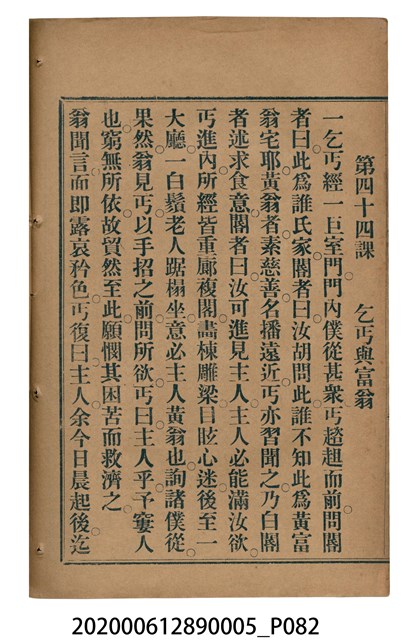 第四十四課　乞丐與富翁
一乞丐經一巨室門門內僕從甚衆丐趦趄而前問閽
者曰此爲誰氏家閽者曰汝胡問此誰不知此爲黃富
翁宅耶黃翁者素慈善名播遠近丐亦習聞之乃白閽
者述求食意閽者曰汝可進見主人主人必能滿汝欲
丐進內所經皆重廊複閣畵棟雕梁目眩心迷後至一
大廳一白鬚老人踞榻坐意必主人黃翁也詢諸僕從
果然翁見丐以手招之前問所欲丐曰主人乎予窶人
也窮無所依故貿然至此願憫其困苦而救濟之
翁聞言而卽露哀矜色丐復曰主人余今日晨起後迄
202000612890005_P082